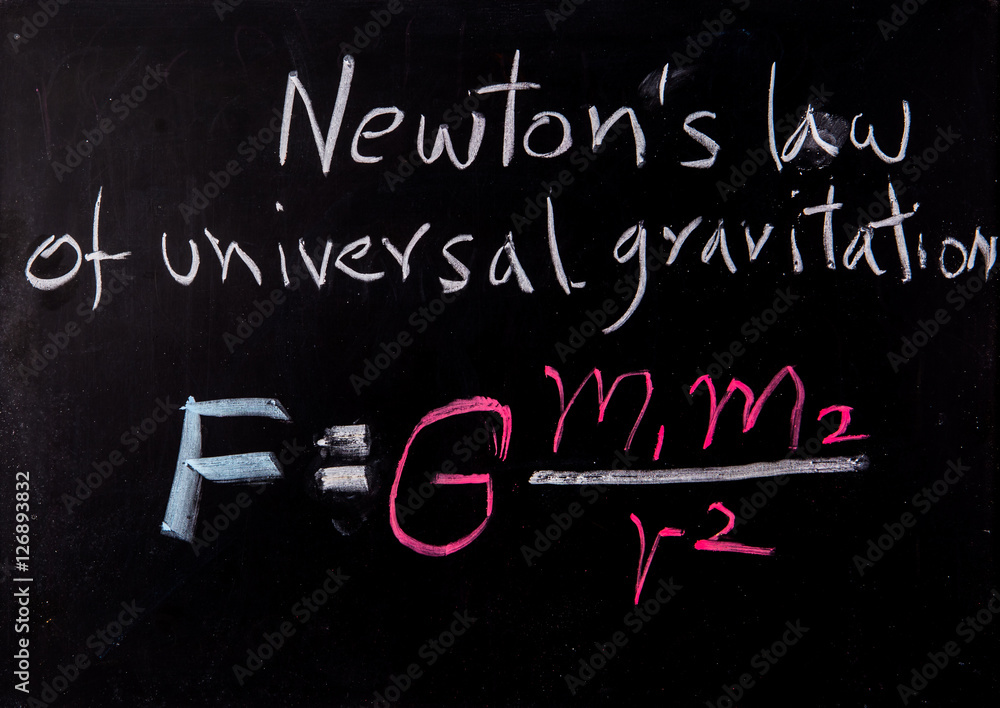 Newton's law
of universal gravitation
F = G m₁m₂ / r²
Adobe Stock | #126893832